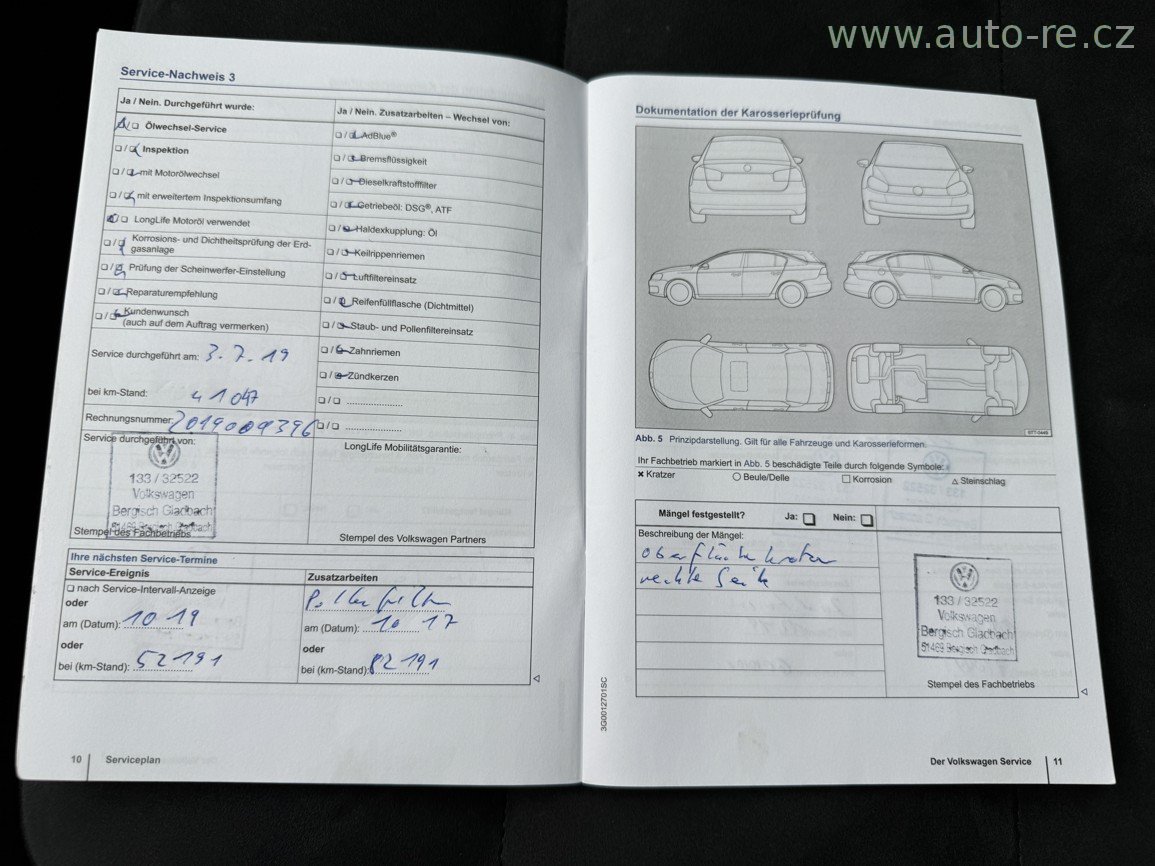 www.auto-re.cz
Service-Nachweis 3
Ja / Nein. Durchgeführt wurde:
Ölwechsel-Service
Inspektion
mit Motorölwechsel
mit erweitertem Inspektionsumfang
LongLife Motoröl verwendet
Korrosions- und Dichtheitsprüfung der Erd-
gasanlage
Prüfung der Scheinwerfer-Einstellung
Reparaturempfehlung
Kundenwunsch
(auch auf dem Auftrag vermerken)
Service durchgeführt am: 3.7.19
bei km-Stand: 41047
Rechnungsnummer: 2019009396
Service durchgeführt von:
133 / 32522
Volkswagen
Bergisch Gladbach
51469 Bergisch Gladbach
Stempel des Fachbetriebs
Ja / Nein. Zusatzarbeiten – Wechsel von:
AdBlue®
Bremsflüssigkeit
Dieselkraftstofffilter
Getriebeöl: DSG®, ATF
Haldexkupplung: Öl
Keilrippenriemen
Luftfiltereinsatz
Reifenfüllflasche (Dichtmittel)
Staub- und Pollenfiltereinsatz
Zahnriemen
Zündkerzen
LongLife Mobilitätsgarantie:
Stempel des Volkswagen Partners
Ihre nächsten Service-Termine
Service-Ereignis
nach Service-Intervall-Anzeige
oder
am (Datum): 10 19
oder
bei (km-Stand): 52191
Zusatzarbeiten
am (Datum): 10 17
oder
bei (km-Stand): 82191
10 Serviceplan
Dokumentation der Karosserieprüfung
6TT-0449
Abb. 5 Prinzipdarstellung. Gilt für alle Fahrzeuge und Karosserieformen.
Ihr Fachbetrieb markiert in Abb. 5 beschädigte Teile durch folgende Symbole:
× Kratzer ○ Beule/Delle □ Korrosion △ Steinschlag
Mängel festgestellt? Ja: Nein:
Beschreibung der Mängel:
rechte Seite
133 / 32522
Volkswagen
Bergisch Gladbach
51469 Bergisch Gladbach
Stempel des Fachbetriebs
3G0012701SC
Der Volkswagen Service 11